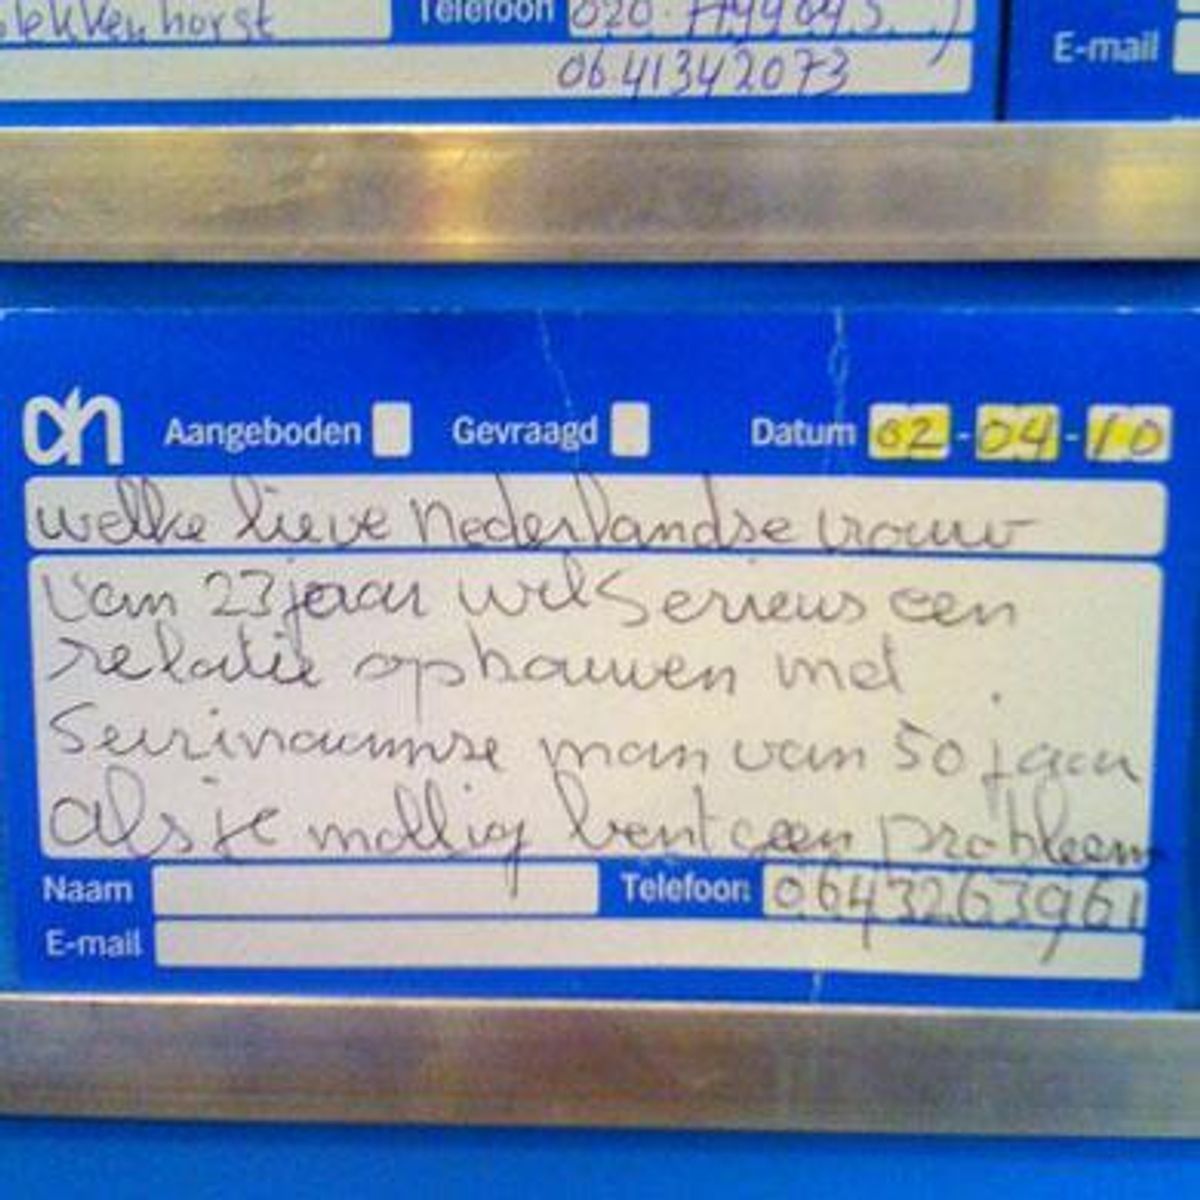 Telefoon 020
0641342073
E-mail
ah Aangeboden Gevraagd Datum 02-04-10
welke lieve Nederlandse vrouw
van 23 jaar wil Serieus een
relatie opbouwen met
Surinaamse man van 50 jaar
als je mollig bent geen probleem
Naam Telefoon 0643263961
E-mail